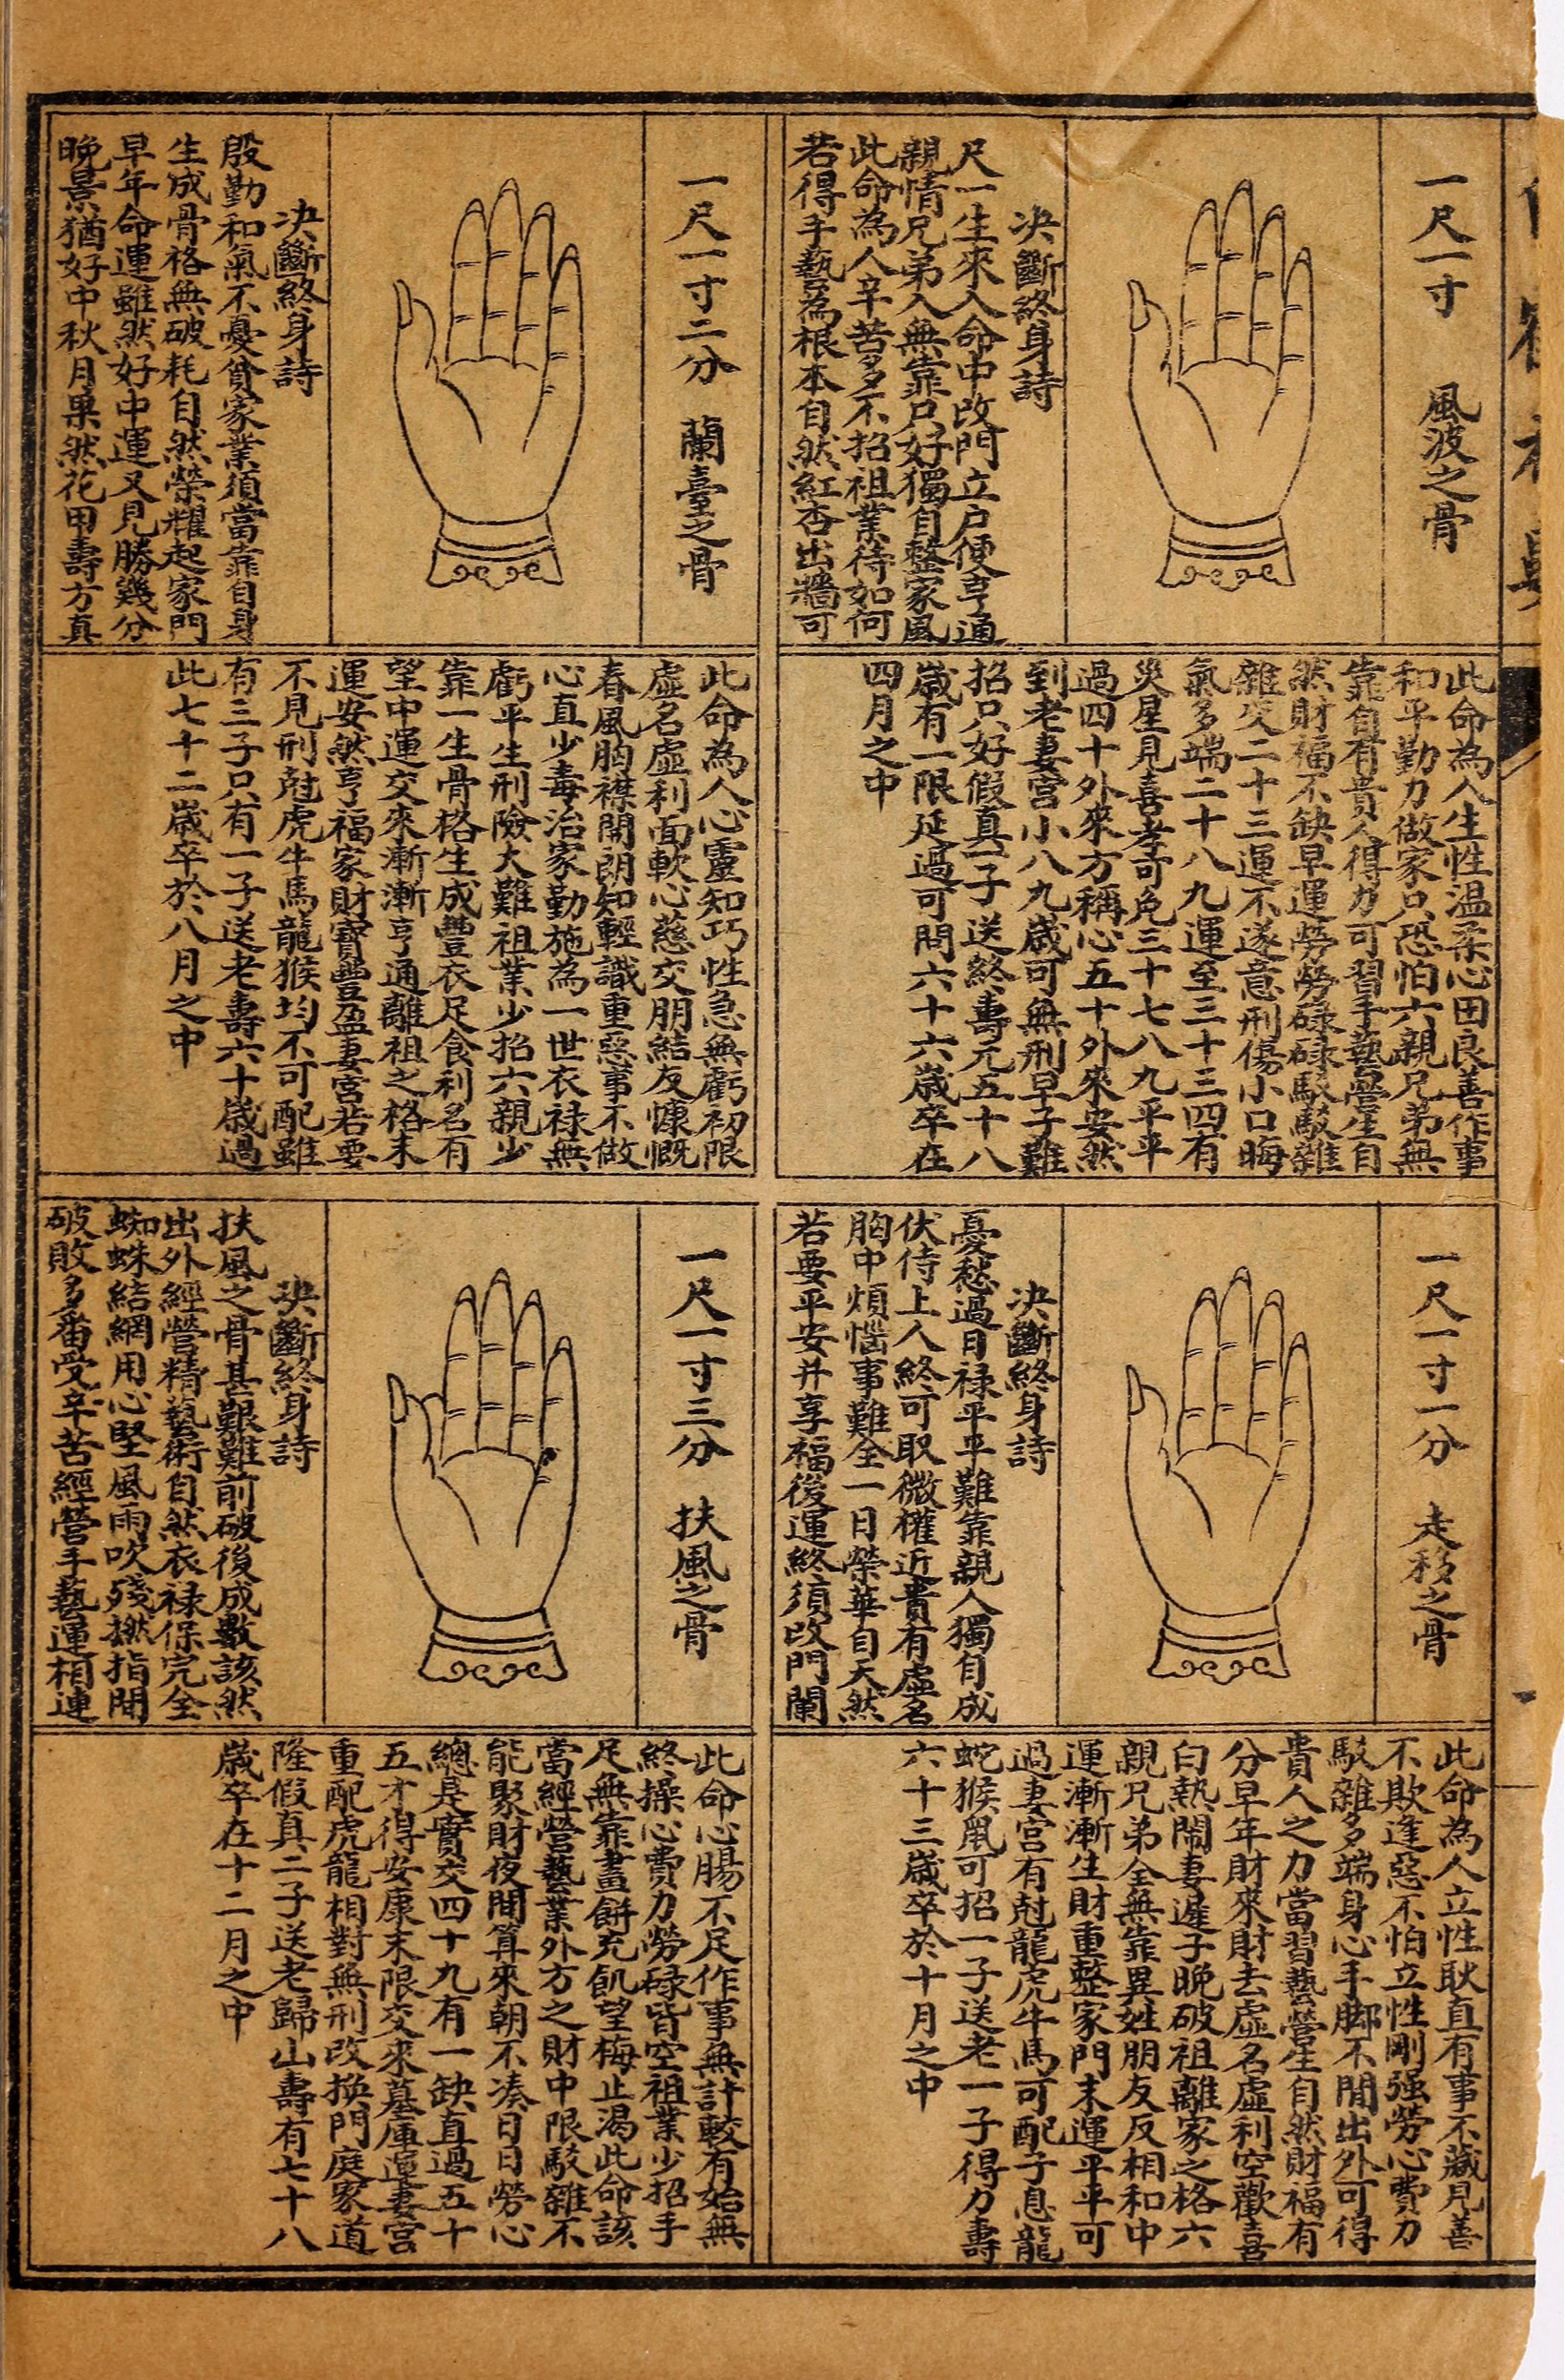 一尺一寸　風波之骨
决斷終身詩
尺一生來入命中改門立户便亨通
親情兄弟入無靠只好獨自整家風
此命為人辛苦多不招祖業待如何
若得手藝為根本自然紅杏出牆可
此命為人生性温柔心田良善作事
和平勤力做家只恐怕六親兄弟無
靠自有貴人得力可習手藝營生自
然財福不缺早運勞勞碌碌駁駁雜
雜交二十三運不遂意刑傷小口晦
氣多端二十八九運至三十三四有
災星見喜孝可免三十七八九平平
過四十外來方稱心五十外來安然
到老妻宮小八九歲可無刑早子難
招只好假真一子送終壽元五十八
歲有一限延過可問六十六歲卒在
四月之中
一尺一寸二分　蘭臺之骨
决斷終身詩
殷勤和氣不憂貧家業須當靠自身
生成骨格無破耗自然榮耀起家門
早年命運雖然好中運又見勝幾分
晚景猶好中秋月果然花甲壽方真
此命為人心靈知巧性急無虧初限
虛名虛利面軟心慈交朋結友慷慨
春風胸襟開朗知輕識重惡事不做
心直少毒治家勤施為一世衣禄無
虧平生刑險大難祖業少招六親少
靠一生骨格生成豐衣足食利名有
望中運交來漸漸亨通離祖之格末
運安然亨福家財寶豐盈妻宮若要
不見刑尅虎牛馬龍猴均不可配雖
有三子只有一子送老壽六十歲過
此七十二歲卒於八月之中
一尺一寸一分　走移之骨
决斷終身詩
憂愁過日禄平平難靠親人獨自成
伏侍上人終可取微權近貴有虛名
胸中煩惱事難全一日榮華自天然
若要平安并享福後運終須改門闌
此命為人立性耿直有事不藏見善
不欺逢惡不怕立性剛强勞心費力
駁雜多端身心手脚不閒出外可得
貴人之力當習藝營生自然財福有
分早年財來財去虛名虛利空歡喜
白熱鬧妻遲子晚破祖離家之格六
親兄弟全無靠異姓朋友反相和中
運漸漸生財重整家門末運平平可
過妻宮有尅龍虎牛馬可配子息龍
蛇猴鼠可招一子送老一子得力壽
六十三歲卒於十月之中
一尺一寸三分　扶風之骨
决斷終身詩
扶風之骨甚艱難前破後成數該然
出外經營精藝術自然衣禄保完全
蜘蛛結網用心堅風雨吹殘撚指間
破敗多番受辛苦經營手藝運相連
此命心腸不足作事無計較有始無
終操心費力勞碌皆空祖業少招手
足無靠畫餅充飢望梅止渴此命該
當經營藝業外方之財中限駁雜不
能聚財夜間算來朝不凑日日勞心
總是實交四十九有一缺直過五十
五才得安康末限交來墓庫運妻宮
重配虎龍相對無刑改換門庭家道
隆假真二子送老歸山壽有七十八
歲卒在十二月之中